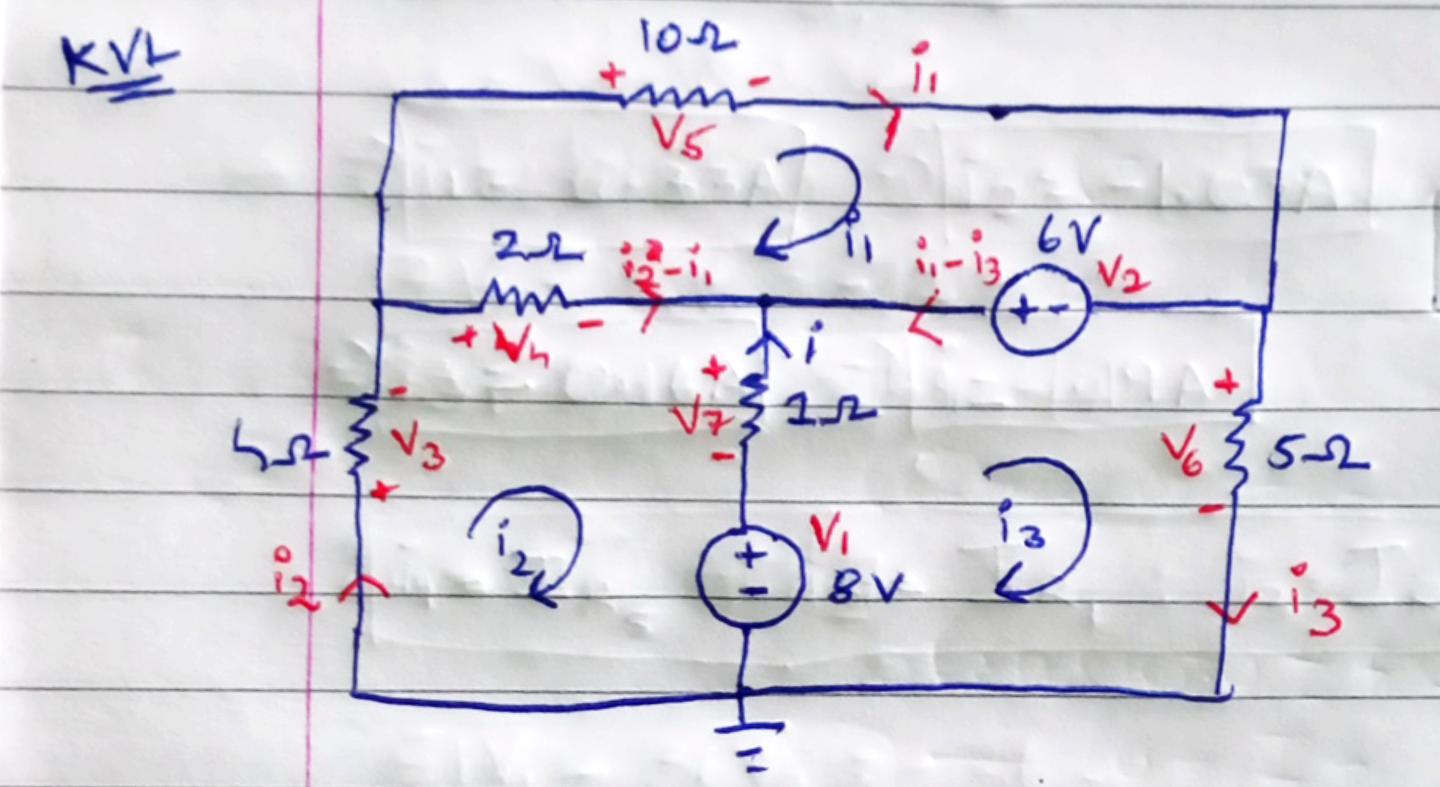 KVL
10Ω
+ -
V5
i1
i1
2Ω
i2-i1
+ V4 -
i1-i3
6V
V2
+ -
i
4Ω
-
V3
+
+
V7
-
1Ω
+
V6
-
5Ω
i2
i2
V1
+
-
8V
i3
i3